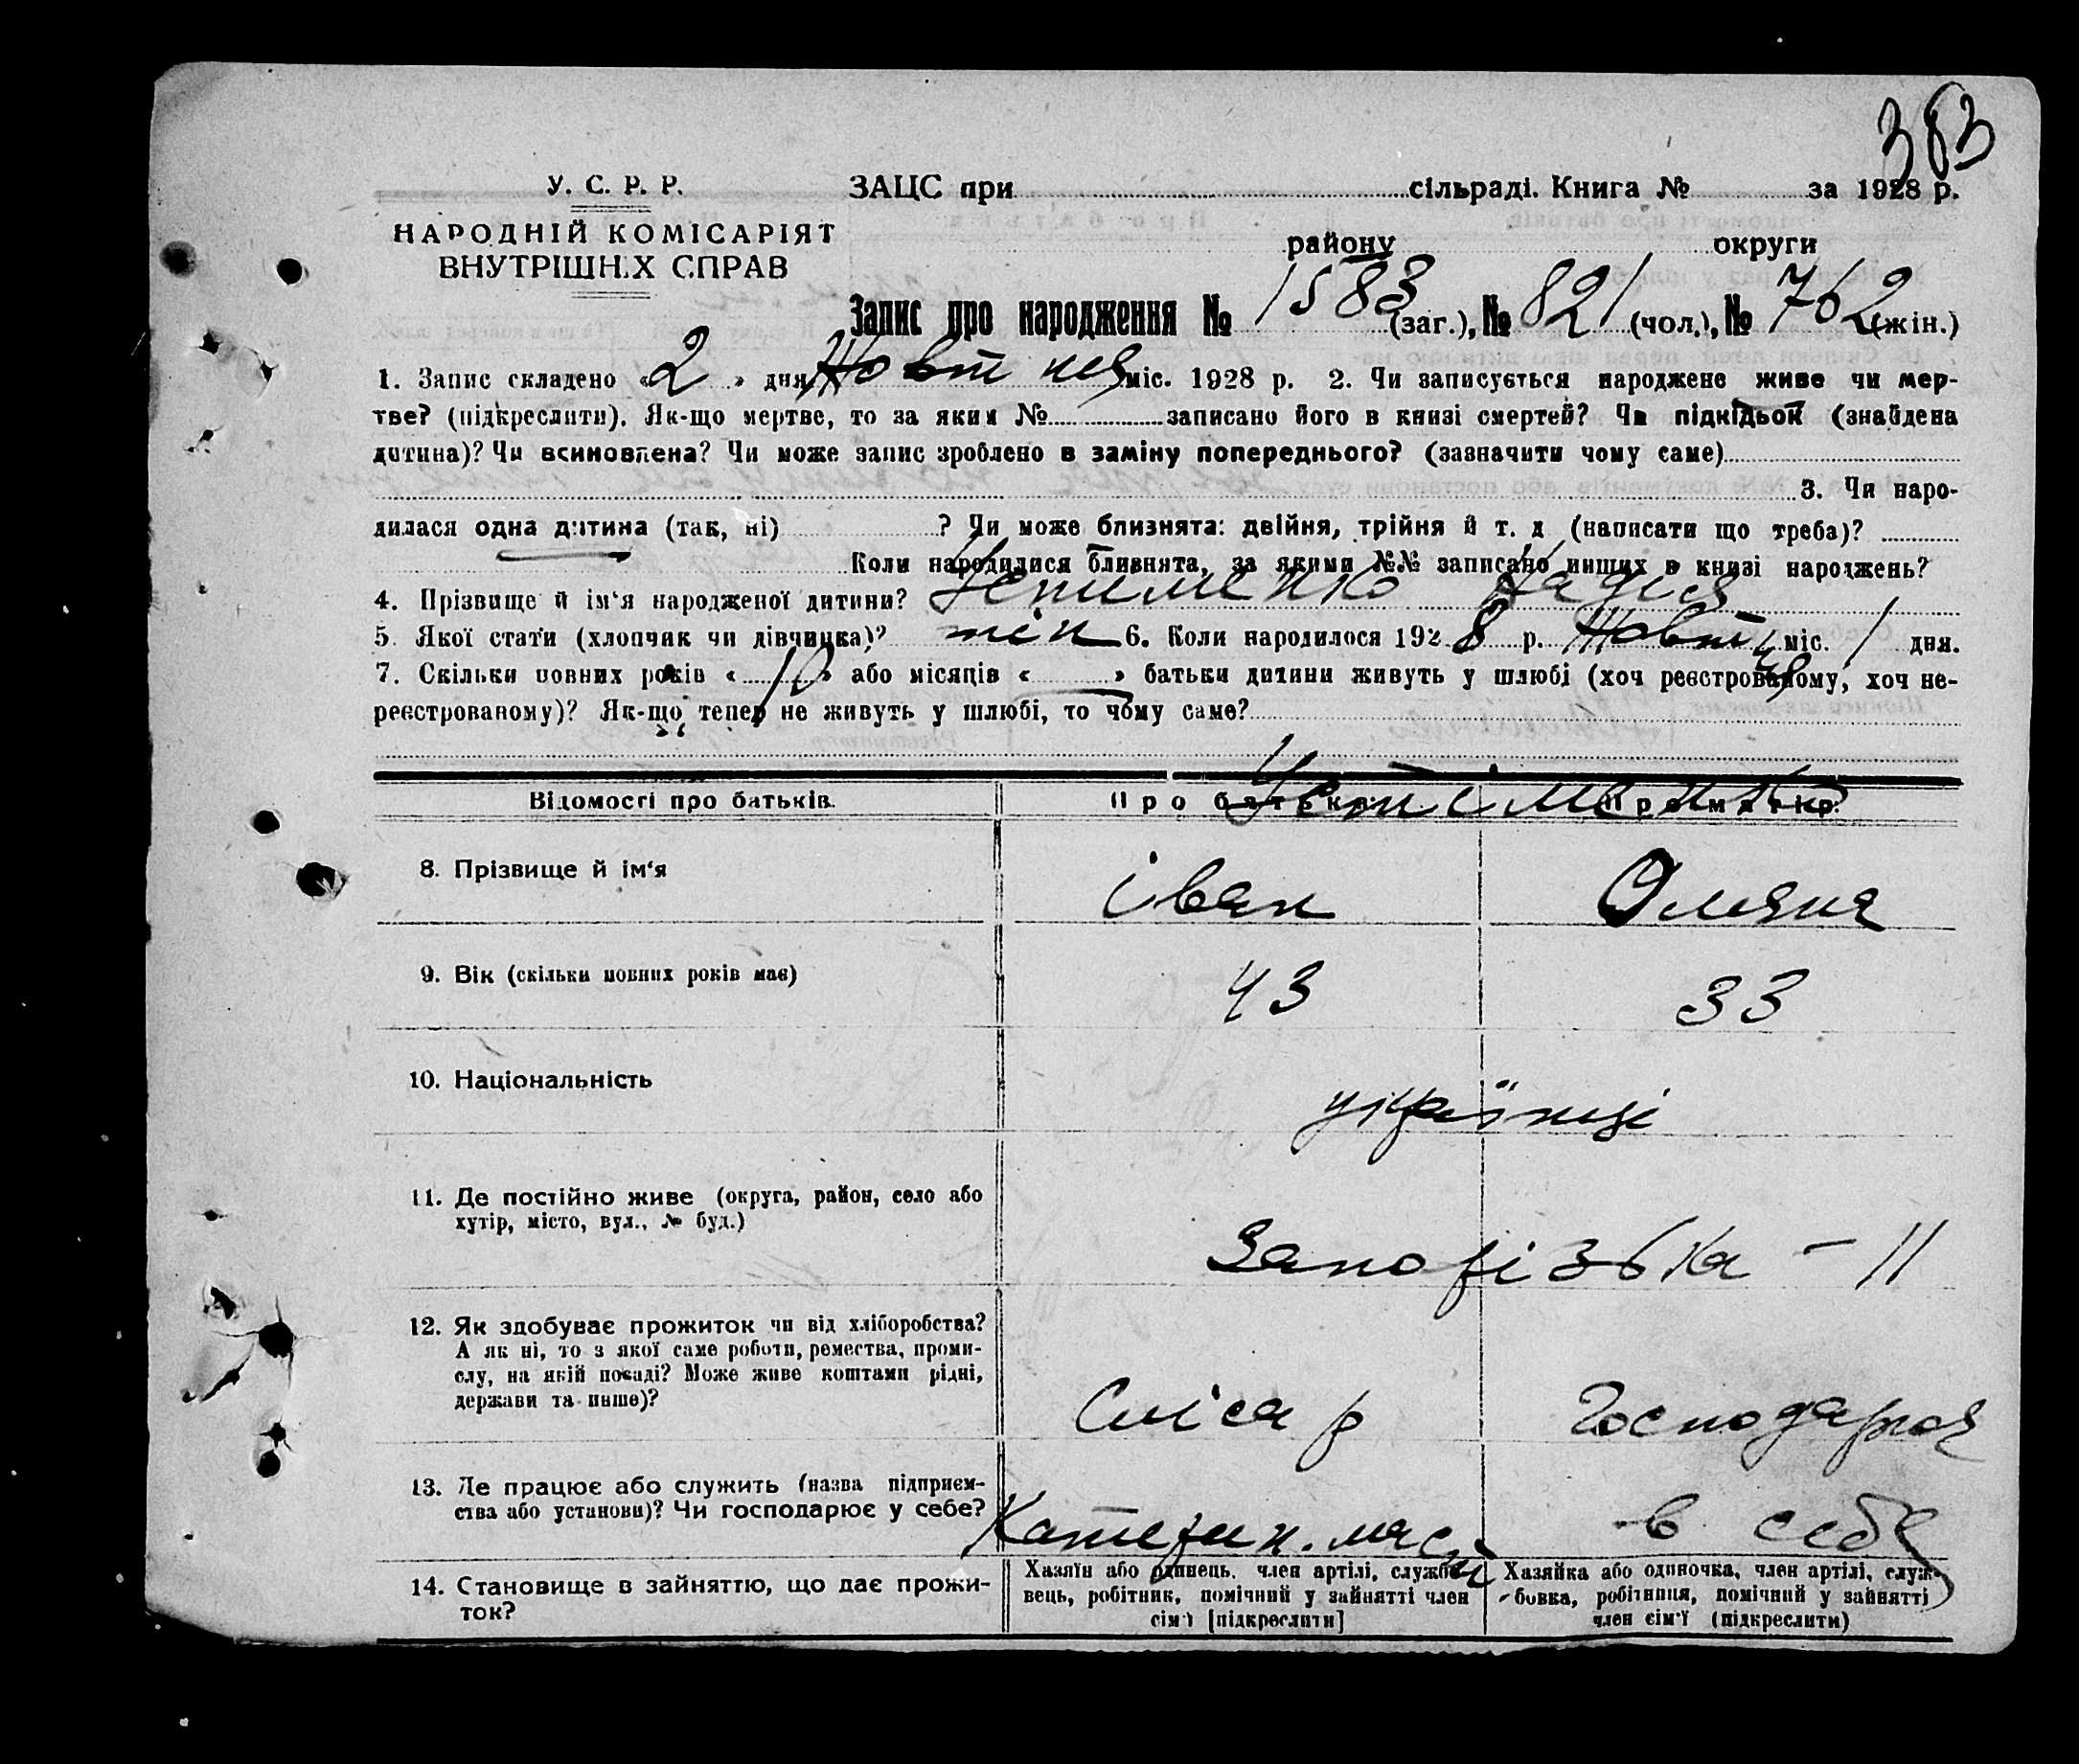 383
У. С. Р. Р.
НАРОДНІЙ КОМІСАРІЯТ
ВНУТРІШНІХ СПРАВ
ЗАЦС при сільраді. Книга № за 1928 р.
району округи
Запис про народження № 1583 (заг.), № 821 (чол.), № 762 (жін.)
1. Запис складено «2» дня Жовтня міс. 1928 р. 2. Чи записується народжене живе чи мер-
тве? (підкреслити). Як-що мертве, то за яким № записано його в книзі смертей? Чи підкідьок (знайдена
дитина)? Чи всиновлена? Чи може запис зроблено в заміну попереднього? (зазначити чому саме)
3. Чи наро-
дилася одна дитина (так, ні) ? Чи може близнята: двійня, трійня й т. д (написати що треба)?
Коли народилися близнята, за якими №№ записано инших в книзі народжень?
4. Прізвище й ім‘я народженої дитини? Надія
5. Якої стати (хлопчик чи дівчинка)? жін 6. Коли народилося 1928 р. Жовтня міс. 1 дня.
7. Скільки повних років «10» або місяців « » батьки дитини живуть у шлюбі (хоч реєстрованому, хоч не-
реєстрованому)? Як-що тепер не живуть у шлюбі, то чому саме?
Відомості про батьків. Про батька: Про матір:
8. Прізвище й ім‘я Іван Омеяна
9. Вік (скільки повних років має) 43 33
10. Національність українці
11. Де постійно живе (округа, район, село або
хутір, місто, вул., № буд.)
Запорізька – 11
12. Як здобуває прожиток чи від хліборобства?
А як ні, то з якої саме роботи, ремества, проми-
слу, на якій посаді? Може живе коштами рідні,
держави та инше)?
Слісар Господарюя
13. Де працює або служить (назва підприєм-
ства або установи)? Чи господарює у себе?
Катерин. в себе
14. Становище в зайняттю, що дає прожи-
ток?
Хазяїн або одинець, член артілі, службо-
вець, робітник, помічний у зайнятті член
сім‘ї [підкреслити]
Хазяйка або одиночка, член артілі, служ-
бовка, робітниця, помічний у зайнятті
член сім‘ї (підкреслити)